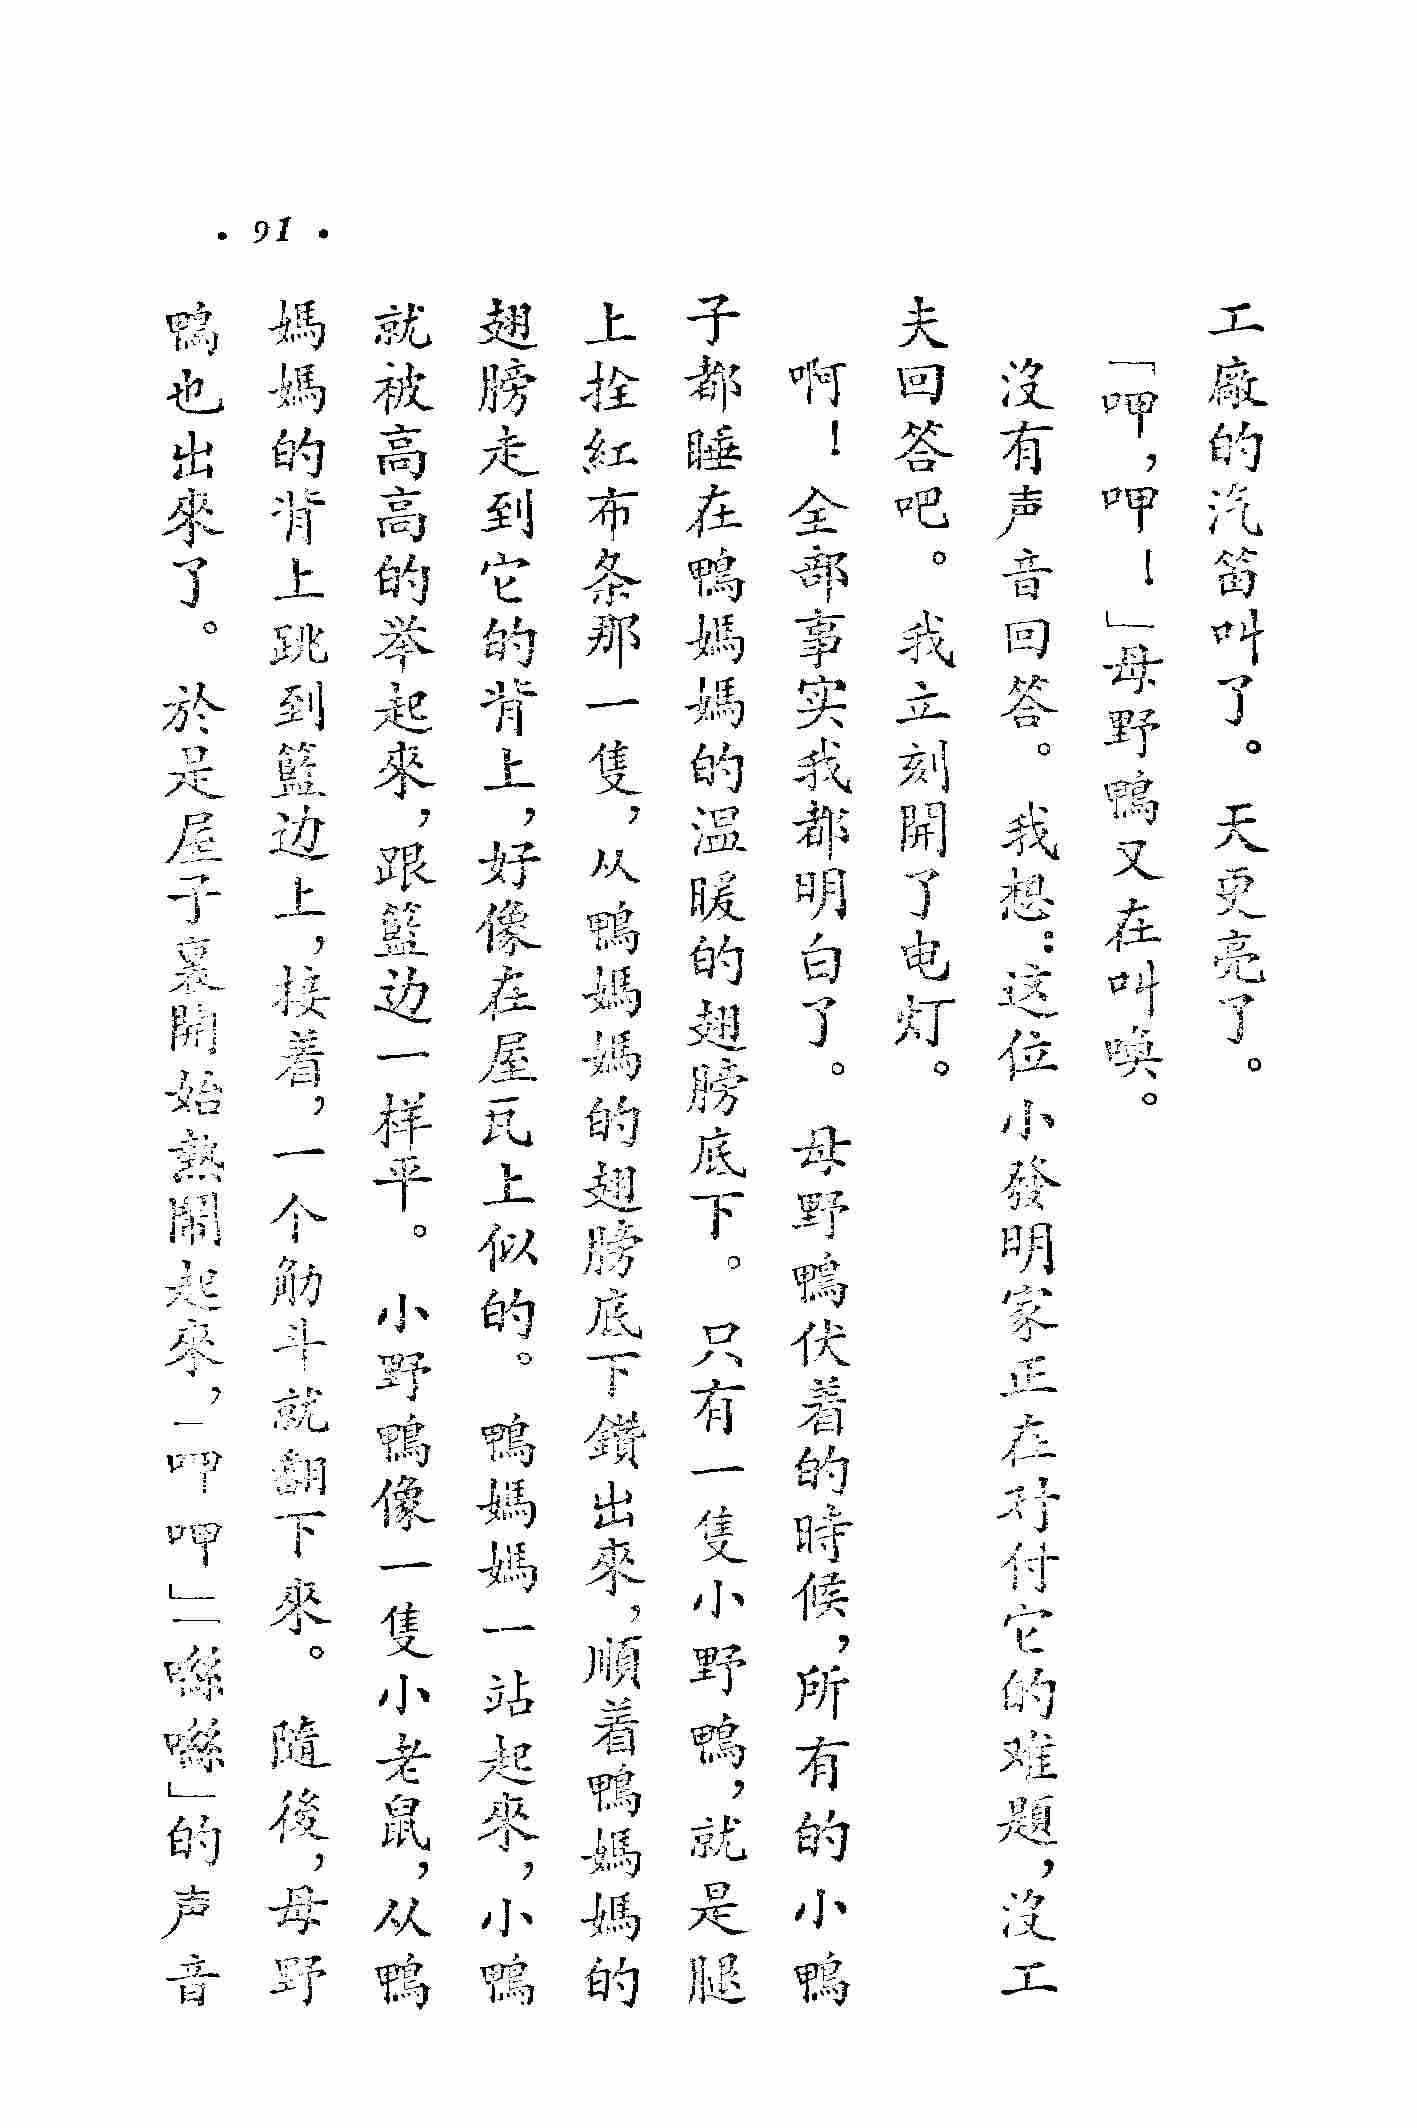 工廠的汽笛叫了。天更亮了。
「呷，呷！」母野鴨又在叫喚。
沒有声音回答。我想：这位小發明家正在对付它的难題，沒工
夫回答吧。我立刻開了电灯。
啊！全部事实我都明白了。母野鴨伏着的時候，所有的小鴨
子都睡在鴨媽媽的温暖的翅膀底下。只有一隻小野鴨，就是腿
上拴紅布条那一隻，从鴨媽媽的翅膀底下鑽出來，順着鴨媽媽的
翅膀走到它的背上，好像在屋瓦上似的。鴨媽媽一站起來，小鴨
就被高高的举起來，跟籃边一样平。小野鴨像一隻小老鼠，从鴨
媽媽的背上跳到籃边上，接着，一个觔斗就翻下來。隨後，母野
鴨也出來了。於是屋子裏開始熱鬧起來，「呷呷」「噝噝」的声音
• 91 •